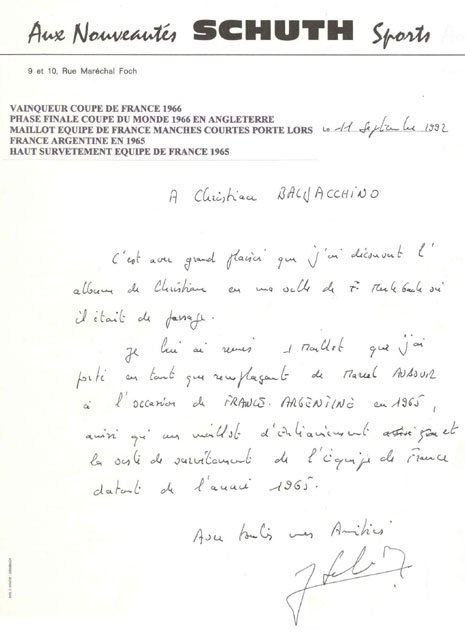 Aux Nouveautés SCHUTH Sports
9 et 10, Rue Maréchal Foch
VAINQUEUR COUPE DE FRANCE 1966
PHASE FINALE COUPE DU MONDE 1966 EN ANGLETERRE
MAILLOT EQUIPE DE FRANCE MANCHES COURTES PORTE LORS
FRANCE ARGENTINE EN 1965
HAUT SURVETEMENT EQUIPE DE FRANCE 1965
Le 11 Septembre 1992
A Christian
C'est avec grand plaisir que j'ai découvert l'
album de Christian en ma ville de où
il était de passage.
Je lui ai remis 1 Maillot que j'ai
porté en tant que remplaçant de Marcel
à l'occasion de FRANCE-ARGENTINE en 1965,
ainsi qu'un maillot d'entrainement et
la veste de survêtement de l'équipe de France
datant de l'année 1965.
Avec toutes mes Amitiés